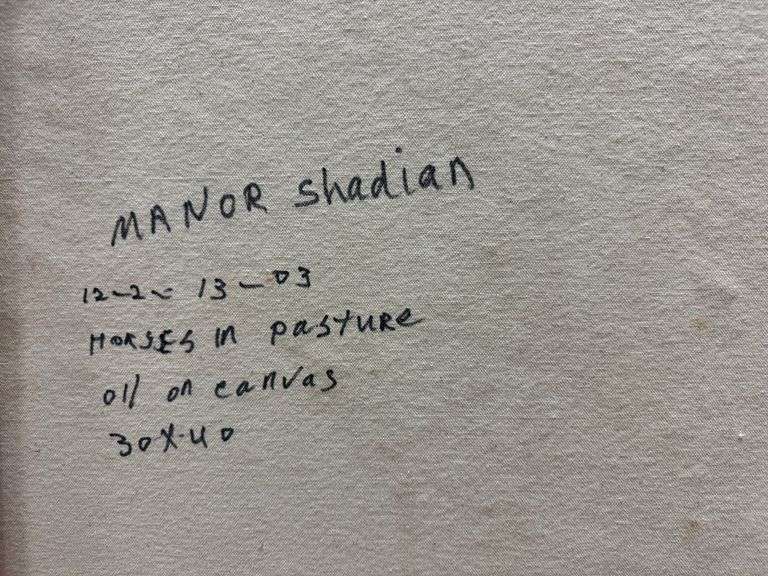 MANOR Shadian
12-2- 13-03
HORSES IN pasture
oil on canvas
30X40